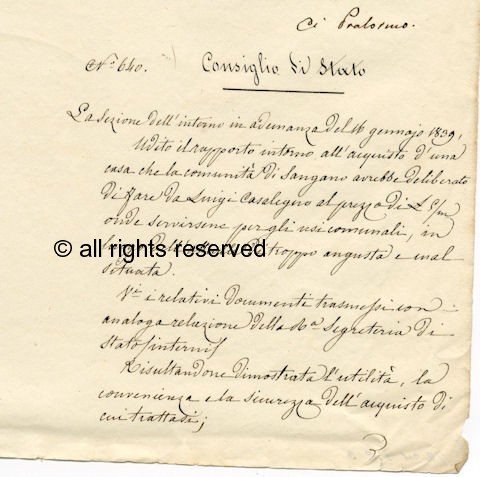 Ci Pralormo.
N.° 640. Consiglio di Stato
La sezione dell'interno in adunanza del 16 gennajo 1839,
Udito il rapporto intorno all'acquisto d'una
casa che la comunità di Sangano avrebbe deliberato
di fare da Luigi Casalegno al prezzo di L.
onde servirsene per gli usi comunali, in
troppo angusta e mal
© all rights reserved
situata.
V.i i relativi documenti trasmessi con
analoga relazione della R.a Segreteria di
stato/interni/
Risultandone dimostrata l'utilità, la
convenienza e la sicurezza dell'acquisto di
cui trattasi;